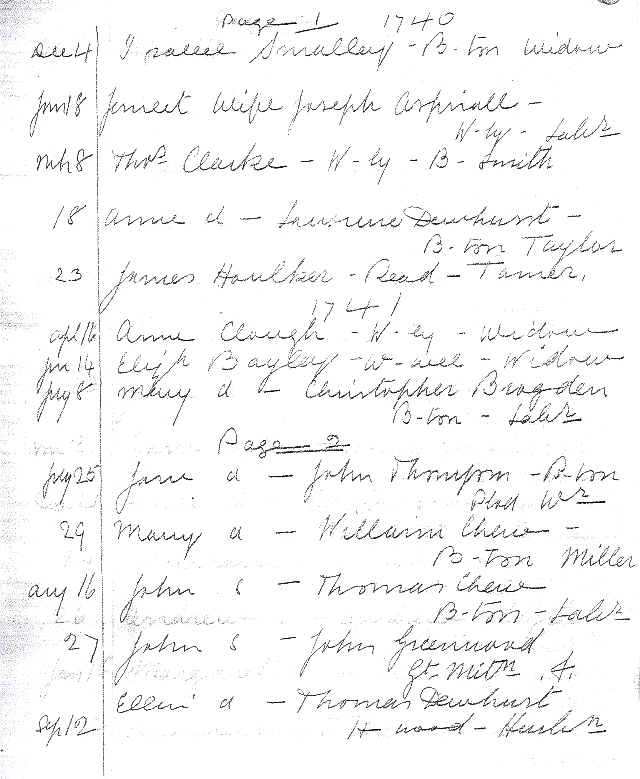 Page 1 1740
Dec 4 Smalley - B-ton Widow
Jan 18 Jennet Wife Joseph Aspinall -
W-ly - Labr
Mch 8 Thos Clarke - W-ly - B - Smith
18 Anne d - Laurence Dewhurst -
B-ton Taylor
23 James Houlker - Read - Tanner.
1741
Apl 16 Anne Clough - W-ly - Widow
Jun 14 Elizh Bayley - W-well - Widow
July 8 Mary d - Christopher Brogden
B-ton - Labr
Page 2
July 25 Jane d - John Thompson - B-ton
Wr
29 Mary d - William Chew -
B-ton Miller
Aug 16 John s - Thomas Chew
B-ton - Labr
27 John s - John Greenwood
Gt. Mittn
Ellin d - Thomas Dewhurst
Sep 12 H-wood - Husbn